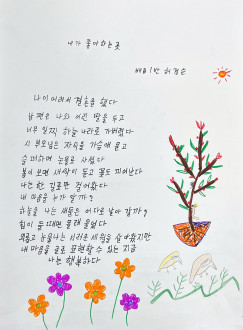 내가 좋아하는 꽃
배움1반 허정순
나이 어려서 결혼을 했다
남편은 나와 어린 딸을 두고
너무 일찍 하늘 나라로 가버렸다
시부모님은 자식을 가슴에 묻고
슬퍼하며 눈물로 사셨다
봄이 오면 새싹이 돋고 꽃도 피어난다
나는 한 길로만 걸어왔다
내 마음을 누가 알까?
하늘을 나는 새들은 어디로 날아갈까?
힘이 들 때면 몰래 울었다
외롭고 눈물나는 서러운 세월을 살아왔지만
내 마음을 글로 표현할 수 있는 지금
나는 행복하다